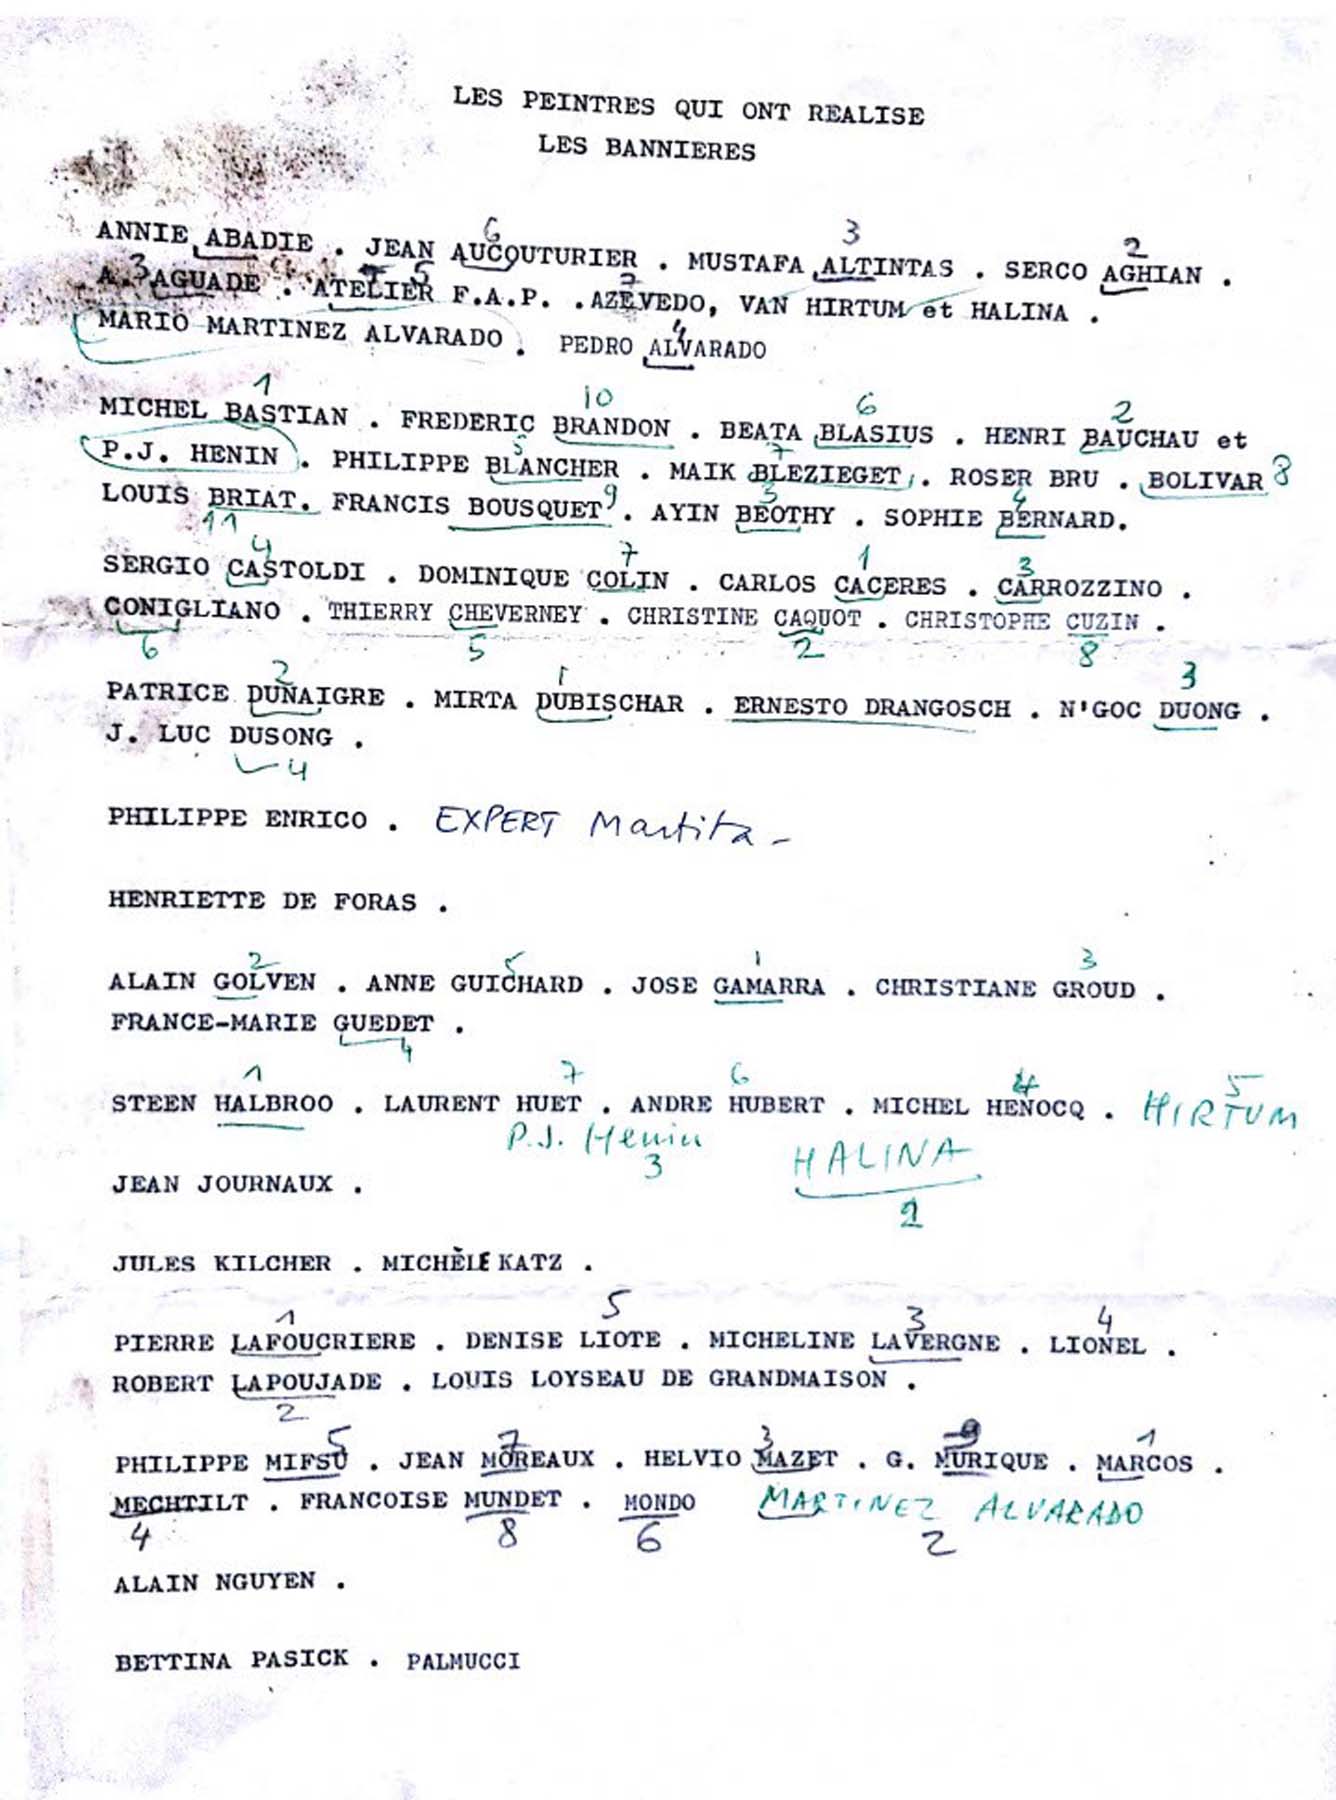 LES PEINTRES QUI ONT REALISE
LES BANNIERES
6 3 2
ANNIE ABADIE . JEAN AUCOUTURIER . MUSTAFA ALTINTAS . SERCO AGHIAN .
3 5 7
A. AGUADE . ATELIER F.A.P. . AZEVEDO, VAN HIRTUM et HALINA .
4
MARIO MARTINEZ ALVARADO . PEDRO ALVARADO
1 10 6 2
MICHEL BASTIAN . FREDERIC BRANDON . BEATA BLASIUS . HENRI BAUCHAU et
5 7
P.J. HENIN . PHILIPPE BLANCHER . MAIK BLEZIEGET . ROSER BRU . BOLIVAR 8
9 3 4
LOUIS BRIAT. FRANCIS BOUSQUET . AYIN BEOTHY . SOPHIE BERNARD.
11
4 7 1 3
SERGIO CASTOLDI . DOMINIQUE COLIN . CARLOS CACERES . CARROZZINO .
CONIGLIANO . THIERRY CHEVERNEY . CHRISTINE CAQUOT . CHRISTOPHE CUZIN .
6 5 2 8
2 1 3
PATRICE DUNAIGRE . MIRTA DUBISCHAR . ERNESTO DRANGOSCH . N'GOC DUONG .
J. LUC DUSONG .
4
PHILIPPE ENRICO . EXPERT Martita -
HENRIETTE DE FORAS .
2 5 1 3
ALAIN GOLVEN . ANNE GUICHARD . JOSE GAMARRA . CHRISTIANE GROUD .
FRANCE-MARIE GUEDET .
4
1 7 6 4 5
STEEN HALBROO . LAURENT HUET . ANDRE HUBERT . MICHEL HENOCQ . HIRTUM
P.J. Henin HALINA
3 2
JEAN JOURNAUX .
JULES KILCHER . MICHÈLE KATZ .
1 5 3 4
PIERRE LAFOUCRIERE . DENISE LIOTE . MICHELINE LAVERGNE . LIONEL .
ROBERT LAPOUJADE . LOUIS LOYSEAU DE GRANDMAISON .
2
5 7 3 9 1
PHILIPPE MIFSU . JEAN MOREAUX . HELVIO MAZET . G. MURIQUE . MARCOS .
MECHTILT . FRANCOISE MUNDET . MONDO MARTINEZ ALVARADO
4 8 6 2
ALAIN NGUYEN .
BETTINA PASICK . PALMUCCI